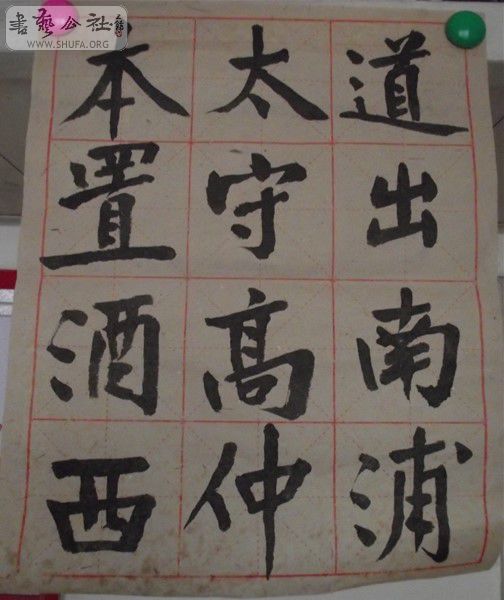 道出南浦
太守高仲
本置酒西
書藝公社
WWW.SHUFA.ORG